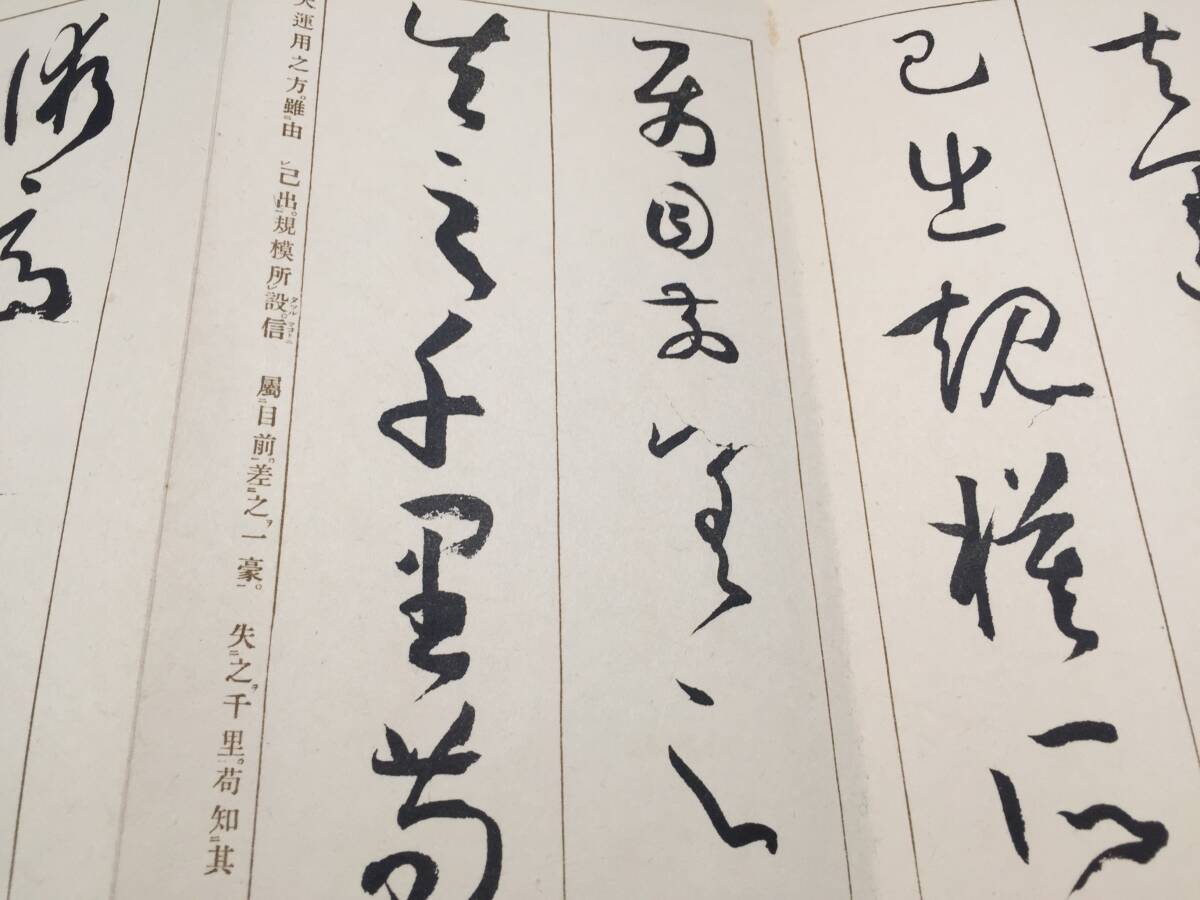 夫運
己出規模所
屬目前差之
失之千里苟
夫運用之方。雖由己出。規模所設。信屬目前。差之一豪。失之千里。苟知其
術適